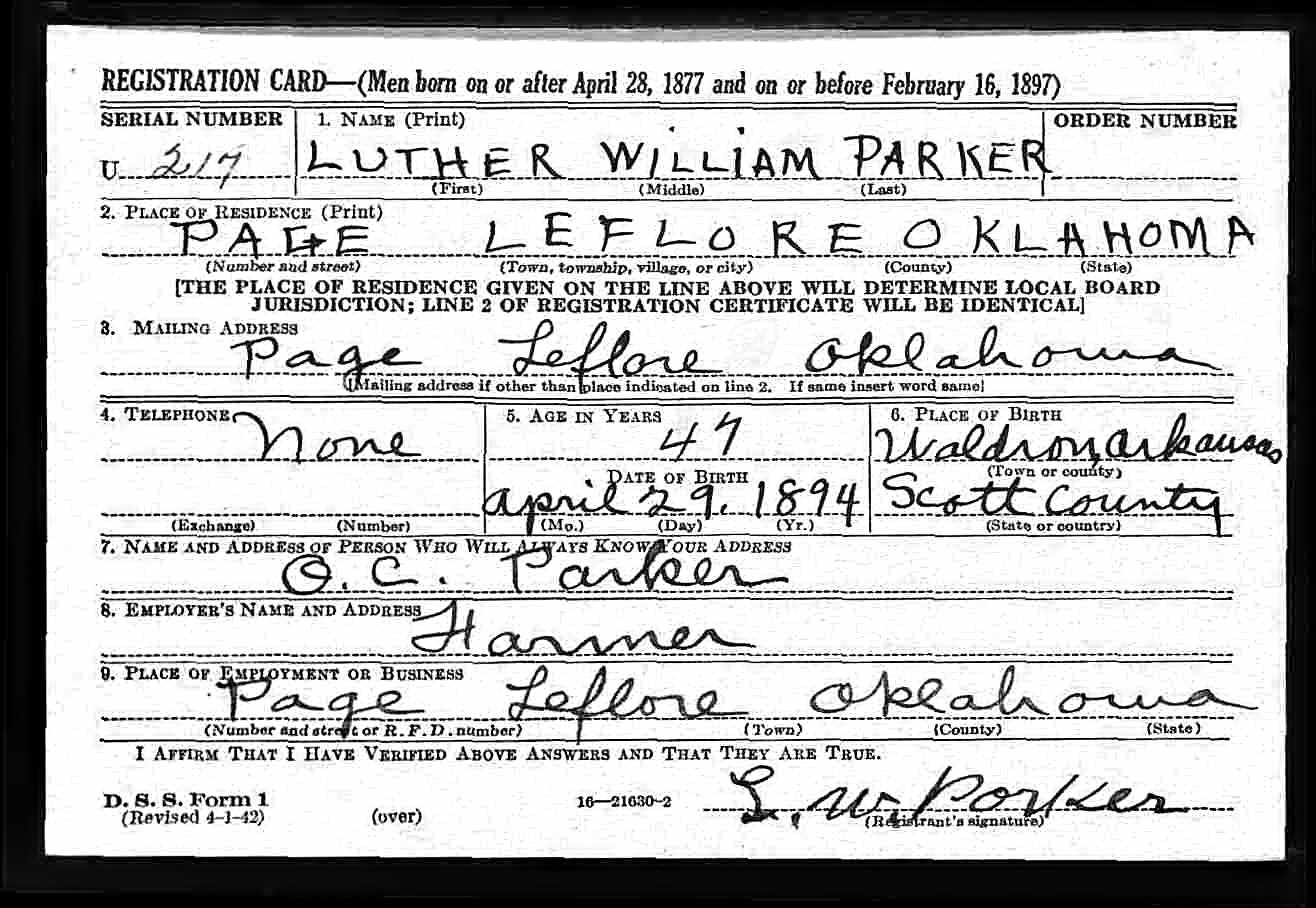 REGISTRATION CARD—(Men born on or after April 28, 1877 and on or before February 16, 1897)
SERIAL NUMBER 1. NAME (Print) ORDER NUMBER
U 217 LUTHER WILLIAM PARKER
(First) (Middle) (Last)
2. PLACE OF RESIDENCE (Print)
PAGE LEFLORE OKLAHOMA
(Number and street) (Town, township, village, or city) (County) (State)
[THE PLACE OF RESIDENCE GIVEN ON THE LINE ABOVE WILL DETERMINE LOCAL BOARD
JURISDICTION; LINE 2 OF REGISTRATION CERTIFICATE WILL BE IDENTICAL]
3. MAILING ADDRESS
Page Leflore Oklahoma
[Mailing address if other than place indicated on line 2. If same insert word same]
4. TELEPHONE 5. AGE IN YEARS 6. PLACE OF BIRTH
None 47 Waldron, arkansas
DATE OF BIRTH (Town or county)
april 29. 1894 Scott County
(Exchange) (Number) (Mo.) (Day) (Yr.) (State or country)
7. NAME AND ADDRESS OF PERSON WHO WILL ALWAYS KNOW YOUR ADDRESS
O. C. Parker
8. EMPLOYER'S NAME AND ADDRESS
Farmer
9. PLACE OF EMPLOYMENT OR BUSINESS
Page Leflore Oklahoma
(Number and street or R. F. D. number) (Town) (County) (State)
I AFFIRM THAT I HAVE VERIFIED ABOVE ANSWERS AND THAT THEY ARE TRUE.
D. S. S. Form 1 16—21630-2 L. W. Parker
(Revised 4-1-42) (over) (Registrant's signature)